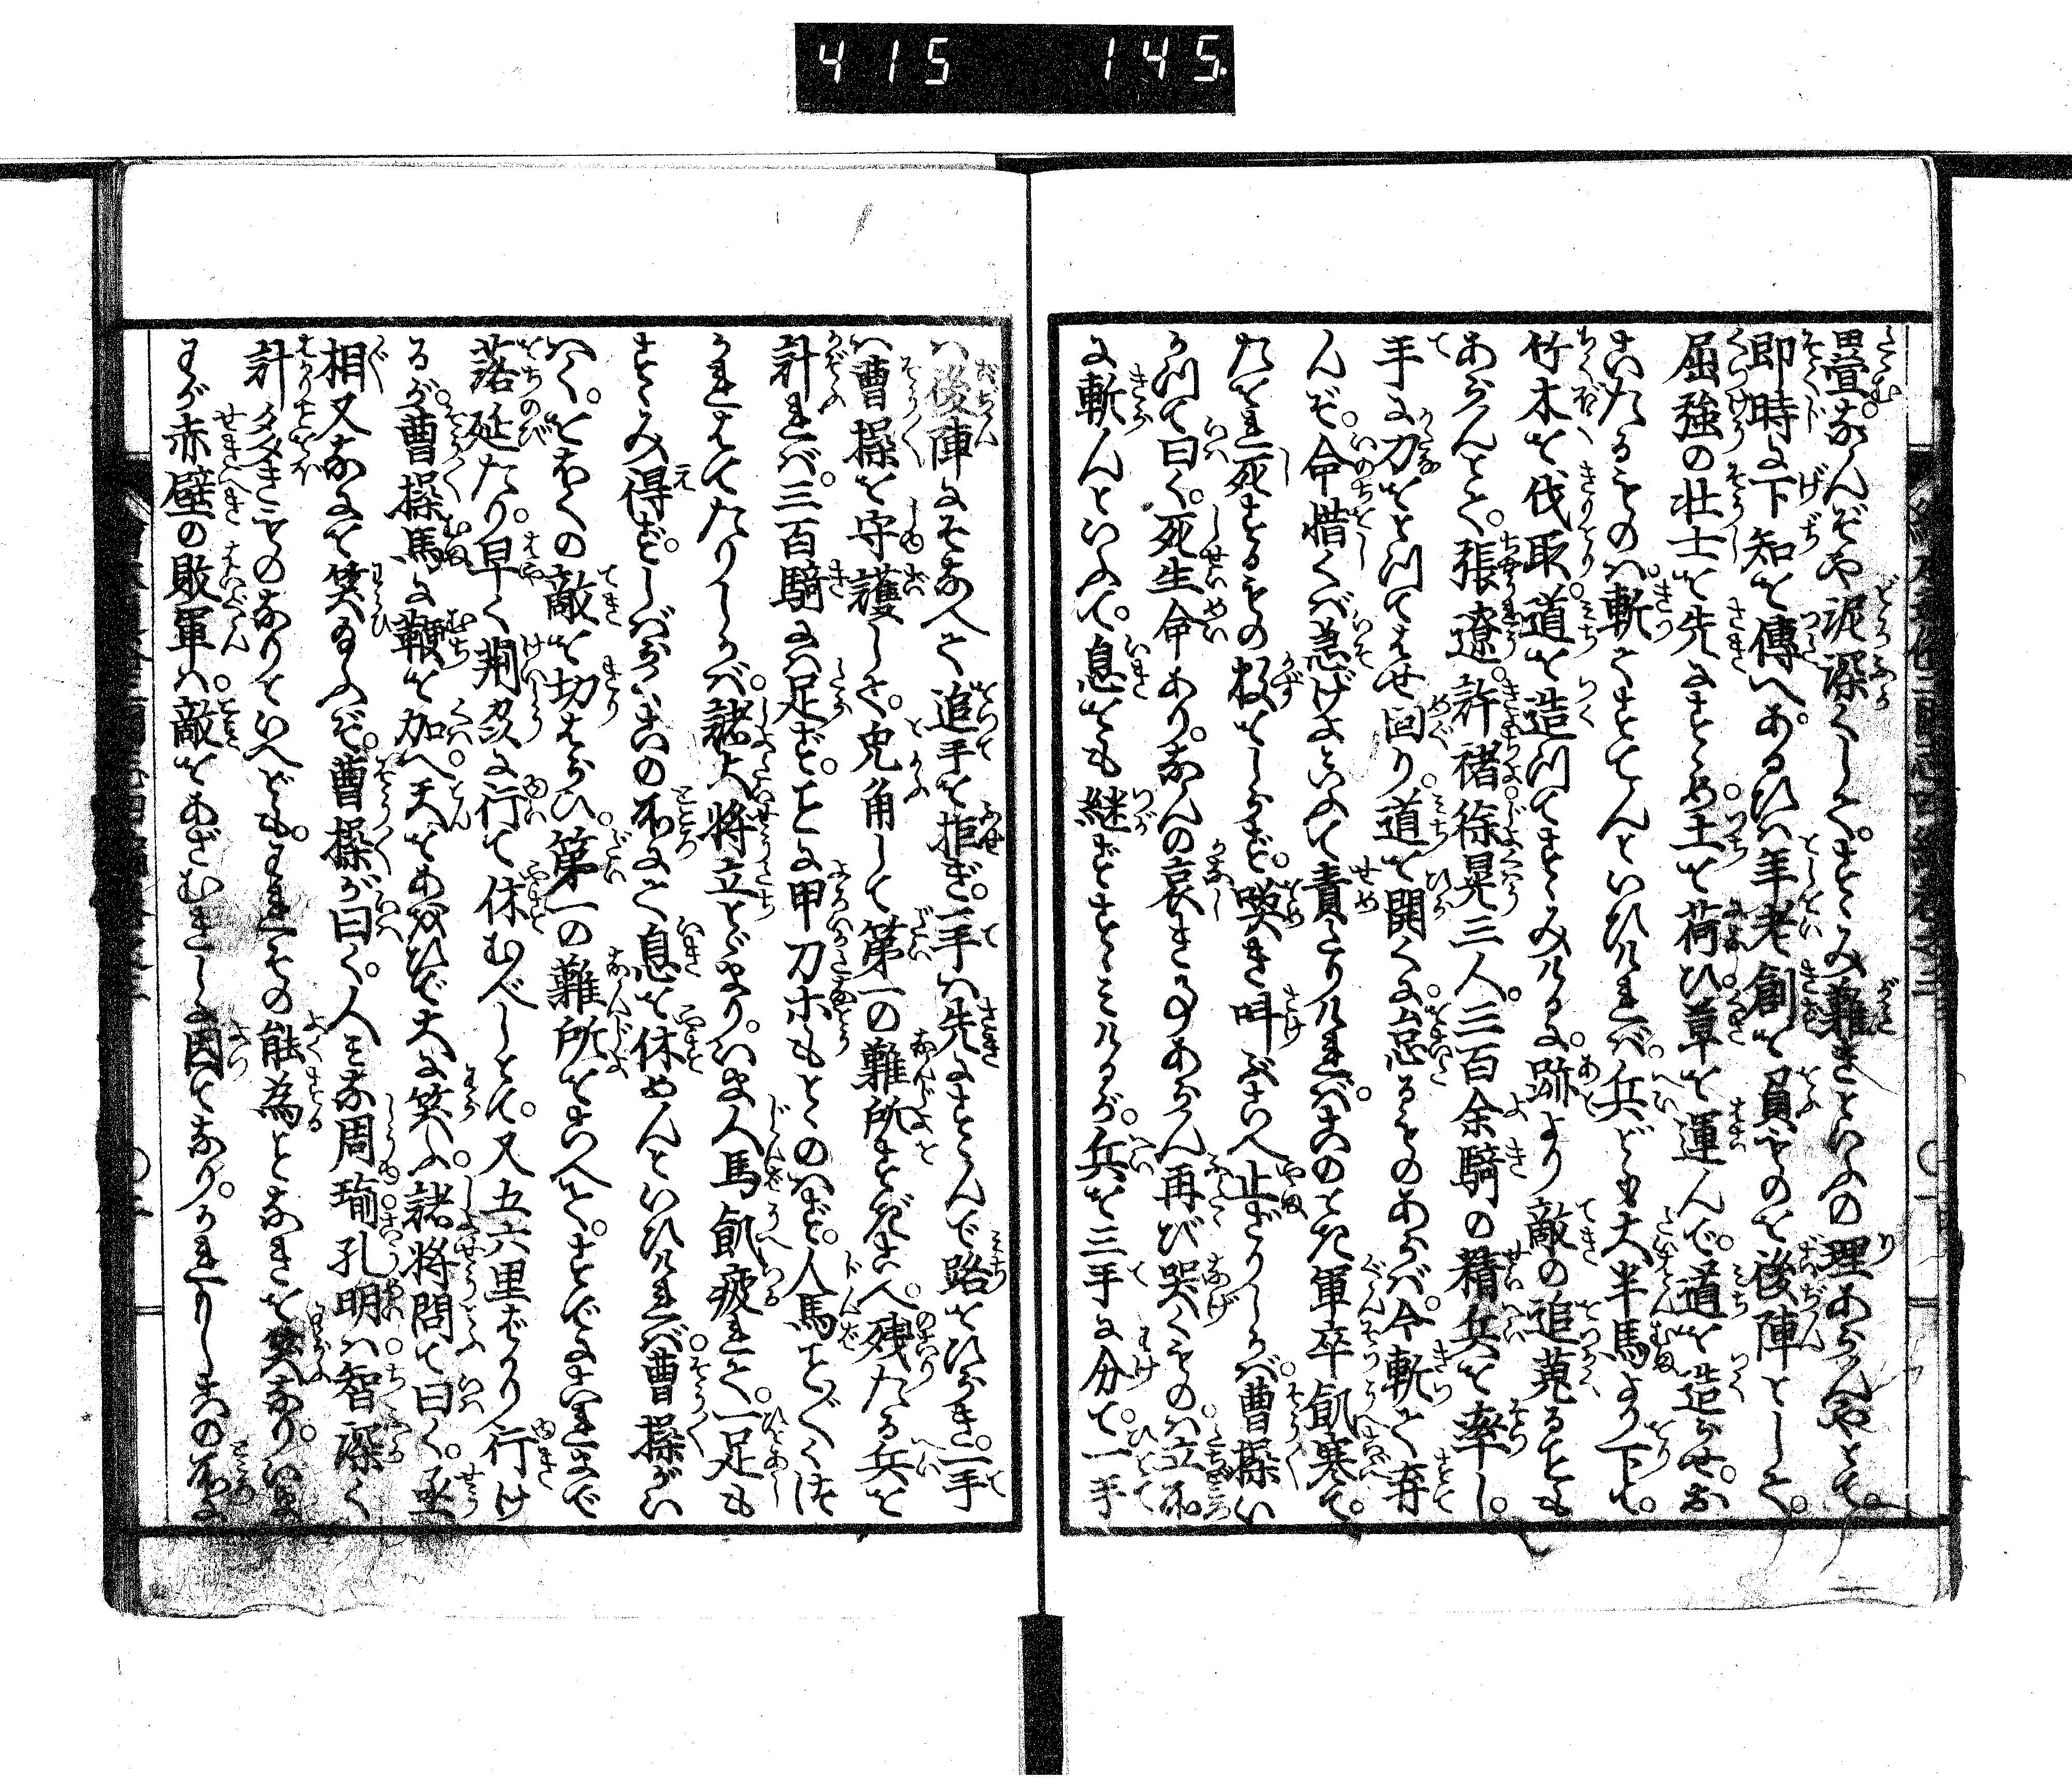 415 145.
畳なんぞや泥深くしてすゝみ難きといふの理あらんやとて。
即時に下知を傳へあるひハ年老創を負ものを後陣として。
屈強の壮士を先にすゝめ土を荷ひ草を運んで道を造らせ。お
竹木を伐取道を造つてすゝみけるに。跡より敵の追蒐るとも
こたるものハ斬てすてんといひけれバ。兵ども大半馬より下て。
あらんとて。張遼。許褚。徐晃三人。三百余騎の精兵を率し。
手に刀をとつてはせ回り。道を開くに怠るものあらバ。今斬て棄
んぞ。命惜くバ急げよといふて責たりけれバ。このとき軍卒飢寒て。
たをれ死するもの数をしらず。喚き叫ぶこへ止ざりしかバ。曹操い
かつて曰く。死生命あり。なんの哀きる事あらん再び哭くものハ立所
に斬んといふて。息をも継ずすゝみけるが。兵を三手に分て。一手
ハ後陣にそなへて追手を拒ぎ。一手ハ先にすゝんで路をひらき。一手
ハ曹操を守護して。兎角して第一の難所をこへ。残たる兵を
計れバ。三百騎に足ず。ことに甲刀ホもとゝのハず。人馬ことごとくは
かれはてたりしかバ。諸大将立とゞまり。いま人馬飢疲れて。一足も
すゝみ得ず。しバらくこの所にて息を休めんといひけれバ。曹操がい
へく。とほくの敵を切はらひ。第一の難所をこへて。すでにこれまで
落延たり。早く荊州に行て休むべしとて。又五六里ばかり行け
るが。曹操馬に鞭を加へ天をあふひで大に笑ふ。諸将問て曰く。丞
相又なにを笑たまふぞ。曹操が曰く。人ミな周瑜孔明ハ智深く
計多きものなりといへども。われその能為ことなきを笑なり。いま
わが赤壁の敗軍ハ。敵をあざむきしに因てなり。かれもしこの所に